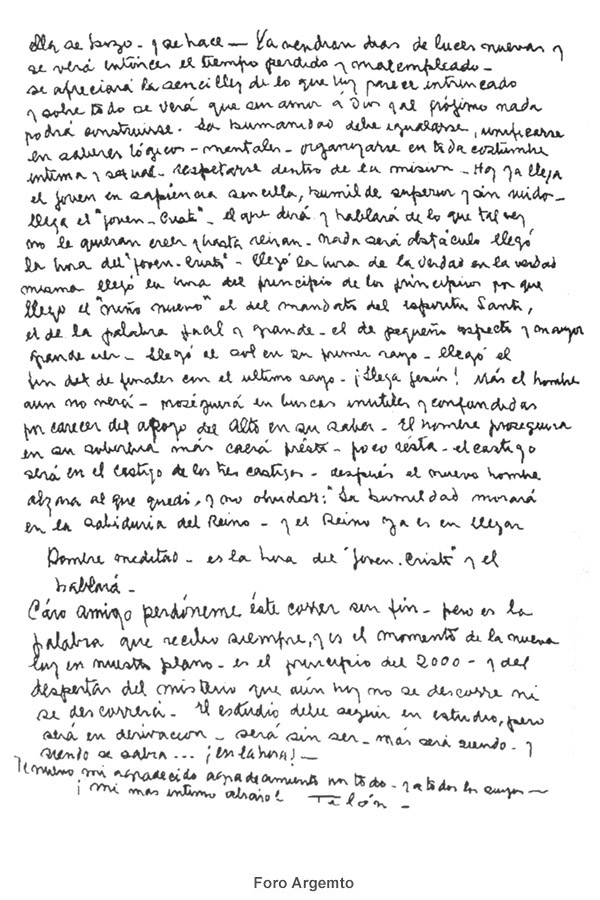 ella se hizo - y se hace - Ya vendran dias de luces nuevas y
se verá entónces el tiempo perdido y mal empleado -
se apreciará la sencillez de lo que hoy parecer intrincado
y sobre todo se verá que sin amor á Dios y al prójimo nada
podrá construirse. La humanidad debe igualarse, unificarse
en saberes lógicos - mentales - organizarse en toda costumbre
intima y sexual - respetarse dentro de la mision - Hoy ya llega
el joven en sapiencia sencilla, humilde superior y sin ruido -
llega el "Joven-Cristo" - el que dirá y hablará de lo que tal vez
no le quieran creer y hasta reiran - nada será obstáculo llegó
la hora del "Joven-Cristo" - llegó la hora de la verdad en la verdad
misma llegó la hora del principio de los principios por que
llegó el "niño nuevo" el del mandato del espiritu Santo,
el de la palabra facil y grande - el de pequeño aspecto y mayor
grande ver - llegó el sol en su primer rayo - llegó el
fin del de finales con el ultimo rayo - ¡Llega Jesús! Más el hombre
aun no verá - proseguirá en buscas inutiles y confundidas
por carecer del apoyo del Alto en su saber - El hombre proseguira
en su soberbia más caerá présto - poco résta - el castigo
será en el castigo de los tres castigos - después el nuevo hombre
al que quedó, y no olvidar: "La humildad morará
en la sabiduria del Reino - y el Reino ya es en llegar
Hombre meditad - es la hora del "Joven-Cristo" y el
hablará -
Cáro amigo perdóneme éste correr sin fin - pero es la
palabra que recibo siempre, y es el momento de la nueva
luz en nuestro plano - es el principio del 2000 - y del
despertar del misterio que aún hoy no se descorre ni
se descorrerá - El estudio debe seguir en estudio, pero
será en derivacion - será sin ser - más será siendo - y
siendo se sabra... ¡en la hora! -
mi agradecido agradecimiento en todo - y a todos los suyos -
¡mi mas intimo abrazo! Telón -
Foro Argemto